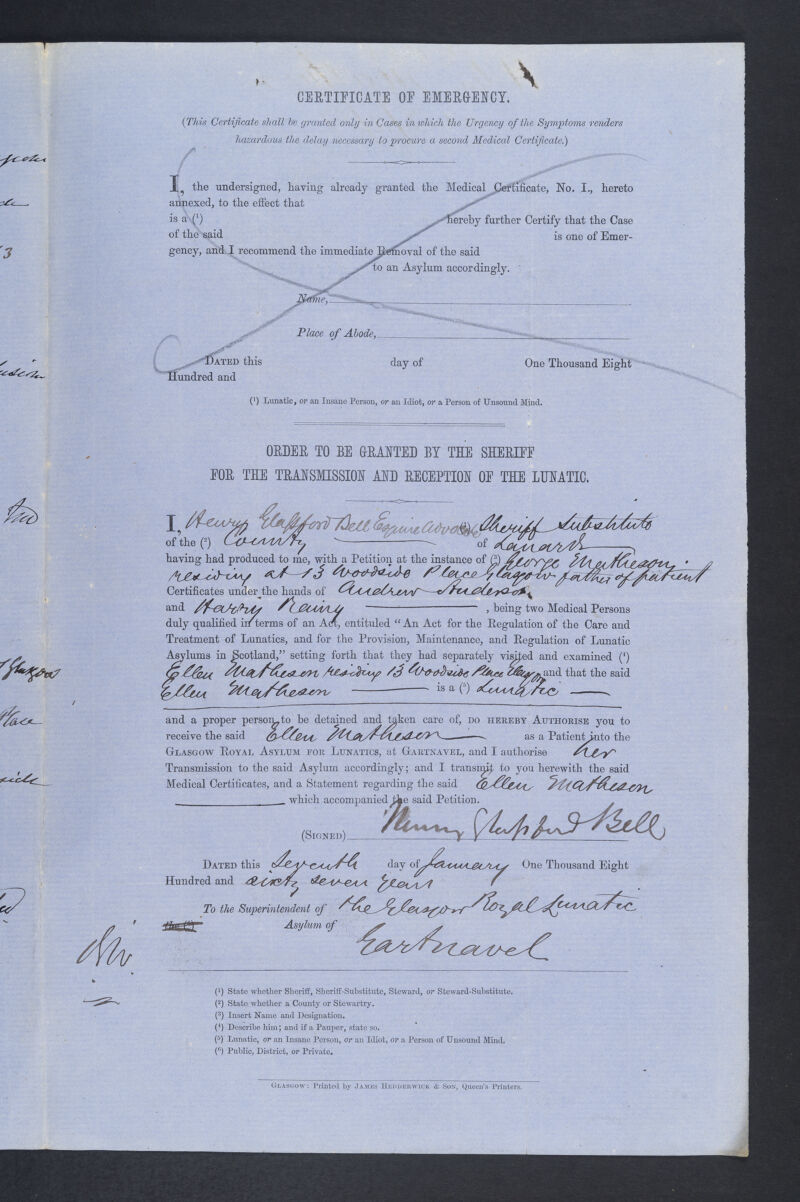 CERTIFICATE OF EMERGENCY.
(This Certificate shall be granted only in Cases in which the Urgency of the Symptoms renders
hazardous the delay necessary to procure a second Medical Certificate.)
I, the undersigned, having already granted the Medical Certificate, No. I., hereto
annexed, to the effect that
is a (¹) hereby further Certify that the Case
of the said is one of Emer-
gency, and I recommend the immediate Removal of the said
to an Asylum accordingly.
Name,
Place of Abode,
DATED this day of One Thousand Eight
Hundred and
(¹) Lunatic, or an Insane Person, or an Idiot, or a Person of Unsound Mind.
ORDER TO BE GRANTED BY THE SHERIFF
FOR THE TRANSMISSION AND RECEPTION OF THE LUNATIC.
I, Henry Glassford Bell Esquire Advocate (¹) Sheriff Substitute
of the (²) County of Lanark
having had produced to me, with a Petition at the instance of (³) George Matheson
residing at 13 Woodside Place Glasgow father of patient
Certificates under the hands of Andrew Anderson
and Harry Rainy , being two Medical Persons
duly qualified in terms of an Act, entituled "An Act for the Regulation of the Care and
Treatment of Lunatics, and for the Provision, Maintenance, and Regulation of Lunatic
Asylums in Scotland," setting forth that they had separately visited and examined (⁴)
Ellen Matheson residing 13 Woodside Place Glasgow and that the said
Ellen Matheson is a (⁵) Lunatic
and a proper person to be detained and taken care of, DO HEREBY AUTHORISE you to
receive the said Ellen Matheson as a Patient into the
GLASGOW ROYAL ASYLUM FOR LUNATICS, at GARTNAVEL, and I authorise her
Transmission to the said Asylum accordingly; and I transmit to you herewith the said
Medical Certificates, and a Statement regarding the said Ellen Matheson
which accompanied the said Petition.
(SIGNED) Henry Glassford Bell
DATED this Seventh day of January One Thousand Eight
Hundred and sixty seven years
To the Superintendent of the Glasgow Royal Lunatic
Asylum of
Gartnavel
(¹) State whether Sheriff, Sheriff-Substitute, Steward, or Steward-Substitute.
(²) State whether a County or Stewartry.
(³) Insert Name and Designation.
(⁴) Describe him; and if a Pauper, state so.
(⁵) Lunatic, or an Insane Person, or an Idiot, or a Person of Unsound Mind.
(⁶) Public, District, or Private.
GLASGOW: Printed by JAMES HEDDERWICK & SON, Queen's Printers.